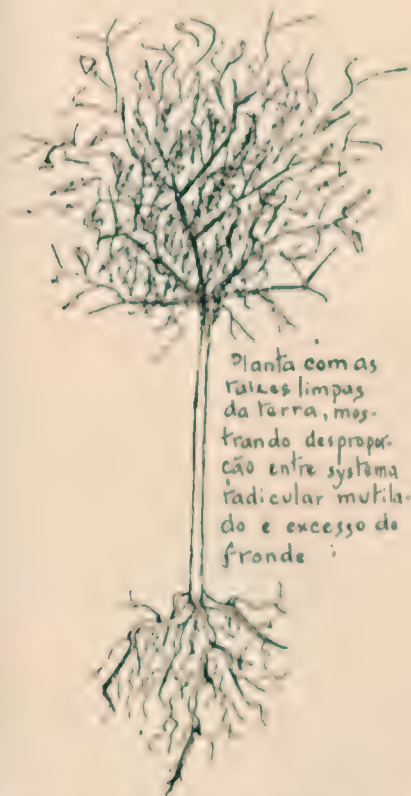 Planta com as
raizes limpas
da terra, mos-
trando despropor-
ção entre systema
radicular mutila-
do e excesso de
fronde